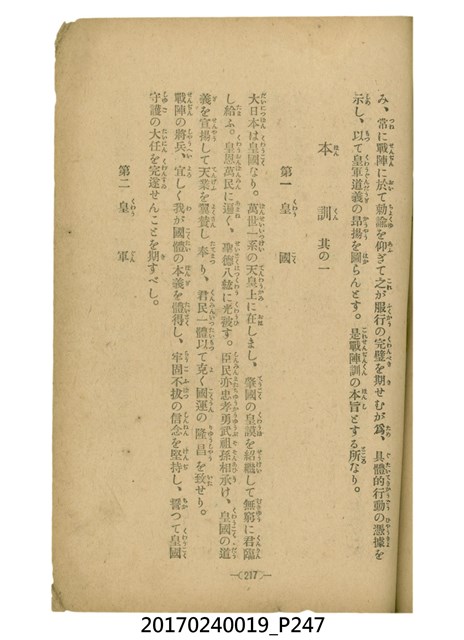 み、常に戰陣に於て勅諭を仰ぎて之が服行の完璧を期せむが爲、具體的行動の憑據を
示し、以て皇軍道義の昂揚を圖らんとす。是戰陣訓の本旨とする所なり。
本訓 其の一
第一 皇國
大日本は皇國なり。萬世一系の天皇上に在しまし、肇國の皇謨を紹繼して無窮に君臨
し給ふ。皇恩萬民に遍く、聖德八紘に光被す。臣民亦忠孝勇武祖孫相承け、皇國の道
義を宣揚して天業を翼贊し奉り、君民一體以て克く國運の隆昌を致せり。
戰陣の將兵、宜しく我が國體の本義を體得し、牢固不拔の信念を堅持し、誓つて皇國
守護の大任を完遂せんことを期すべし。
第二 皇軍
217
20170240019_P247